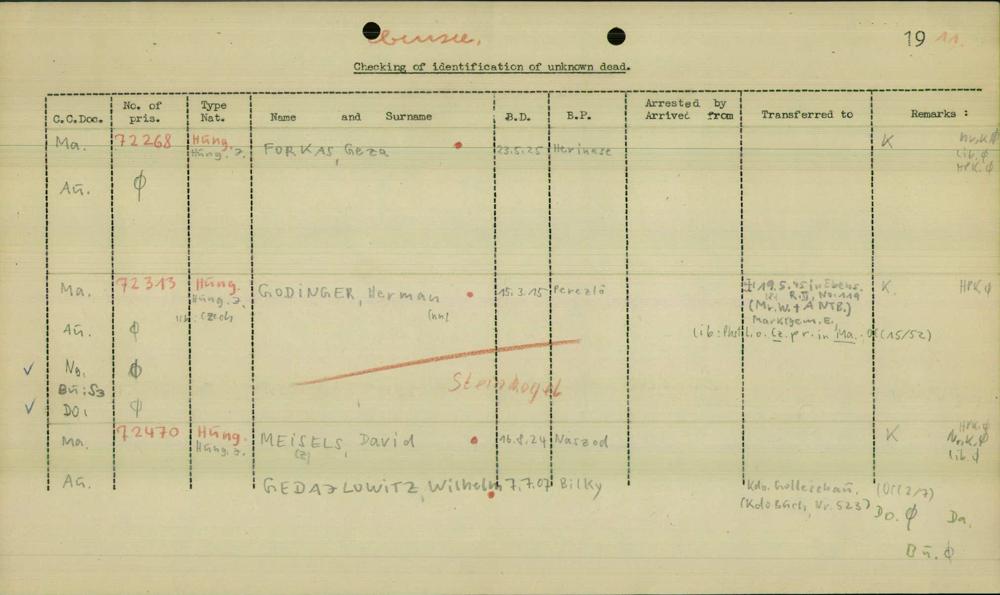 19 11.
Checking of identification of unknown dead.
C.C.Doc. No. of pris. Type Nat. Name and Surname B.D. B.P. Arrested by Arrived from Transferred to Remarks :
Ma. 72268 Hüng. FORKAS, Geza 23.5.25 K Nr.K.ϕ
Hüng. J. lib. ϕ
HPK. ϕ
Aü. ϕ
Ma. 72313 Hüng. GODINGER, Herman 15.3.15 Perezlö 19.5.45 in Ebens. K. HPK. ϕ
Hüng. J. (nn) R.II, No. 119
Czech (Mr. W. + A NTB.)
Marktgem. E.
Aü. ϕ Cz. pr. in Ma. (15/52)
No. ϕ
Bü: S3 Steinkogel
Do. ϕ
Ma. 72470 Hüng. MEISELS, David 16.8.24 Naszod K HPK. ϕ
Hüng. J. Nr.K. ϕ
lib. ϕ
Aü. GEDAJLOWITZ, Wilhelm 7.7.07 Bilky Kdo. Golleschau. (OCC2/7)
(Kdo Büch, Nr. 523) Do. ϕ Da.
Bü. ϕ